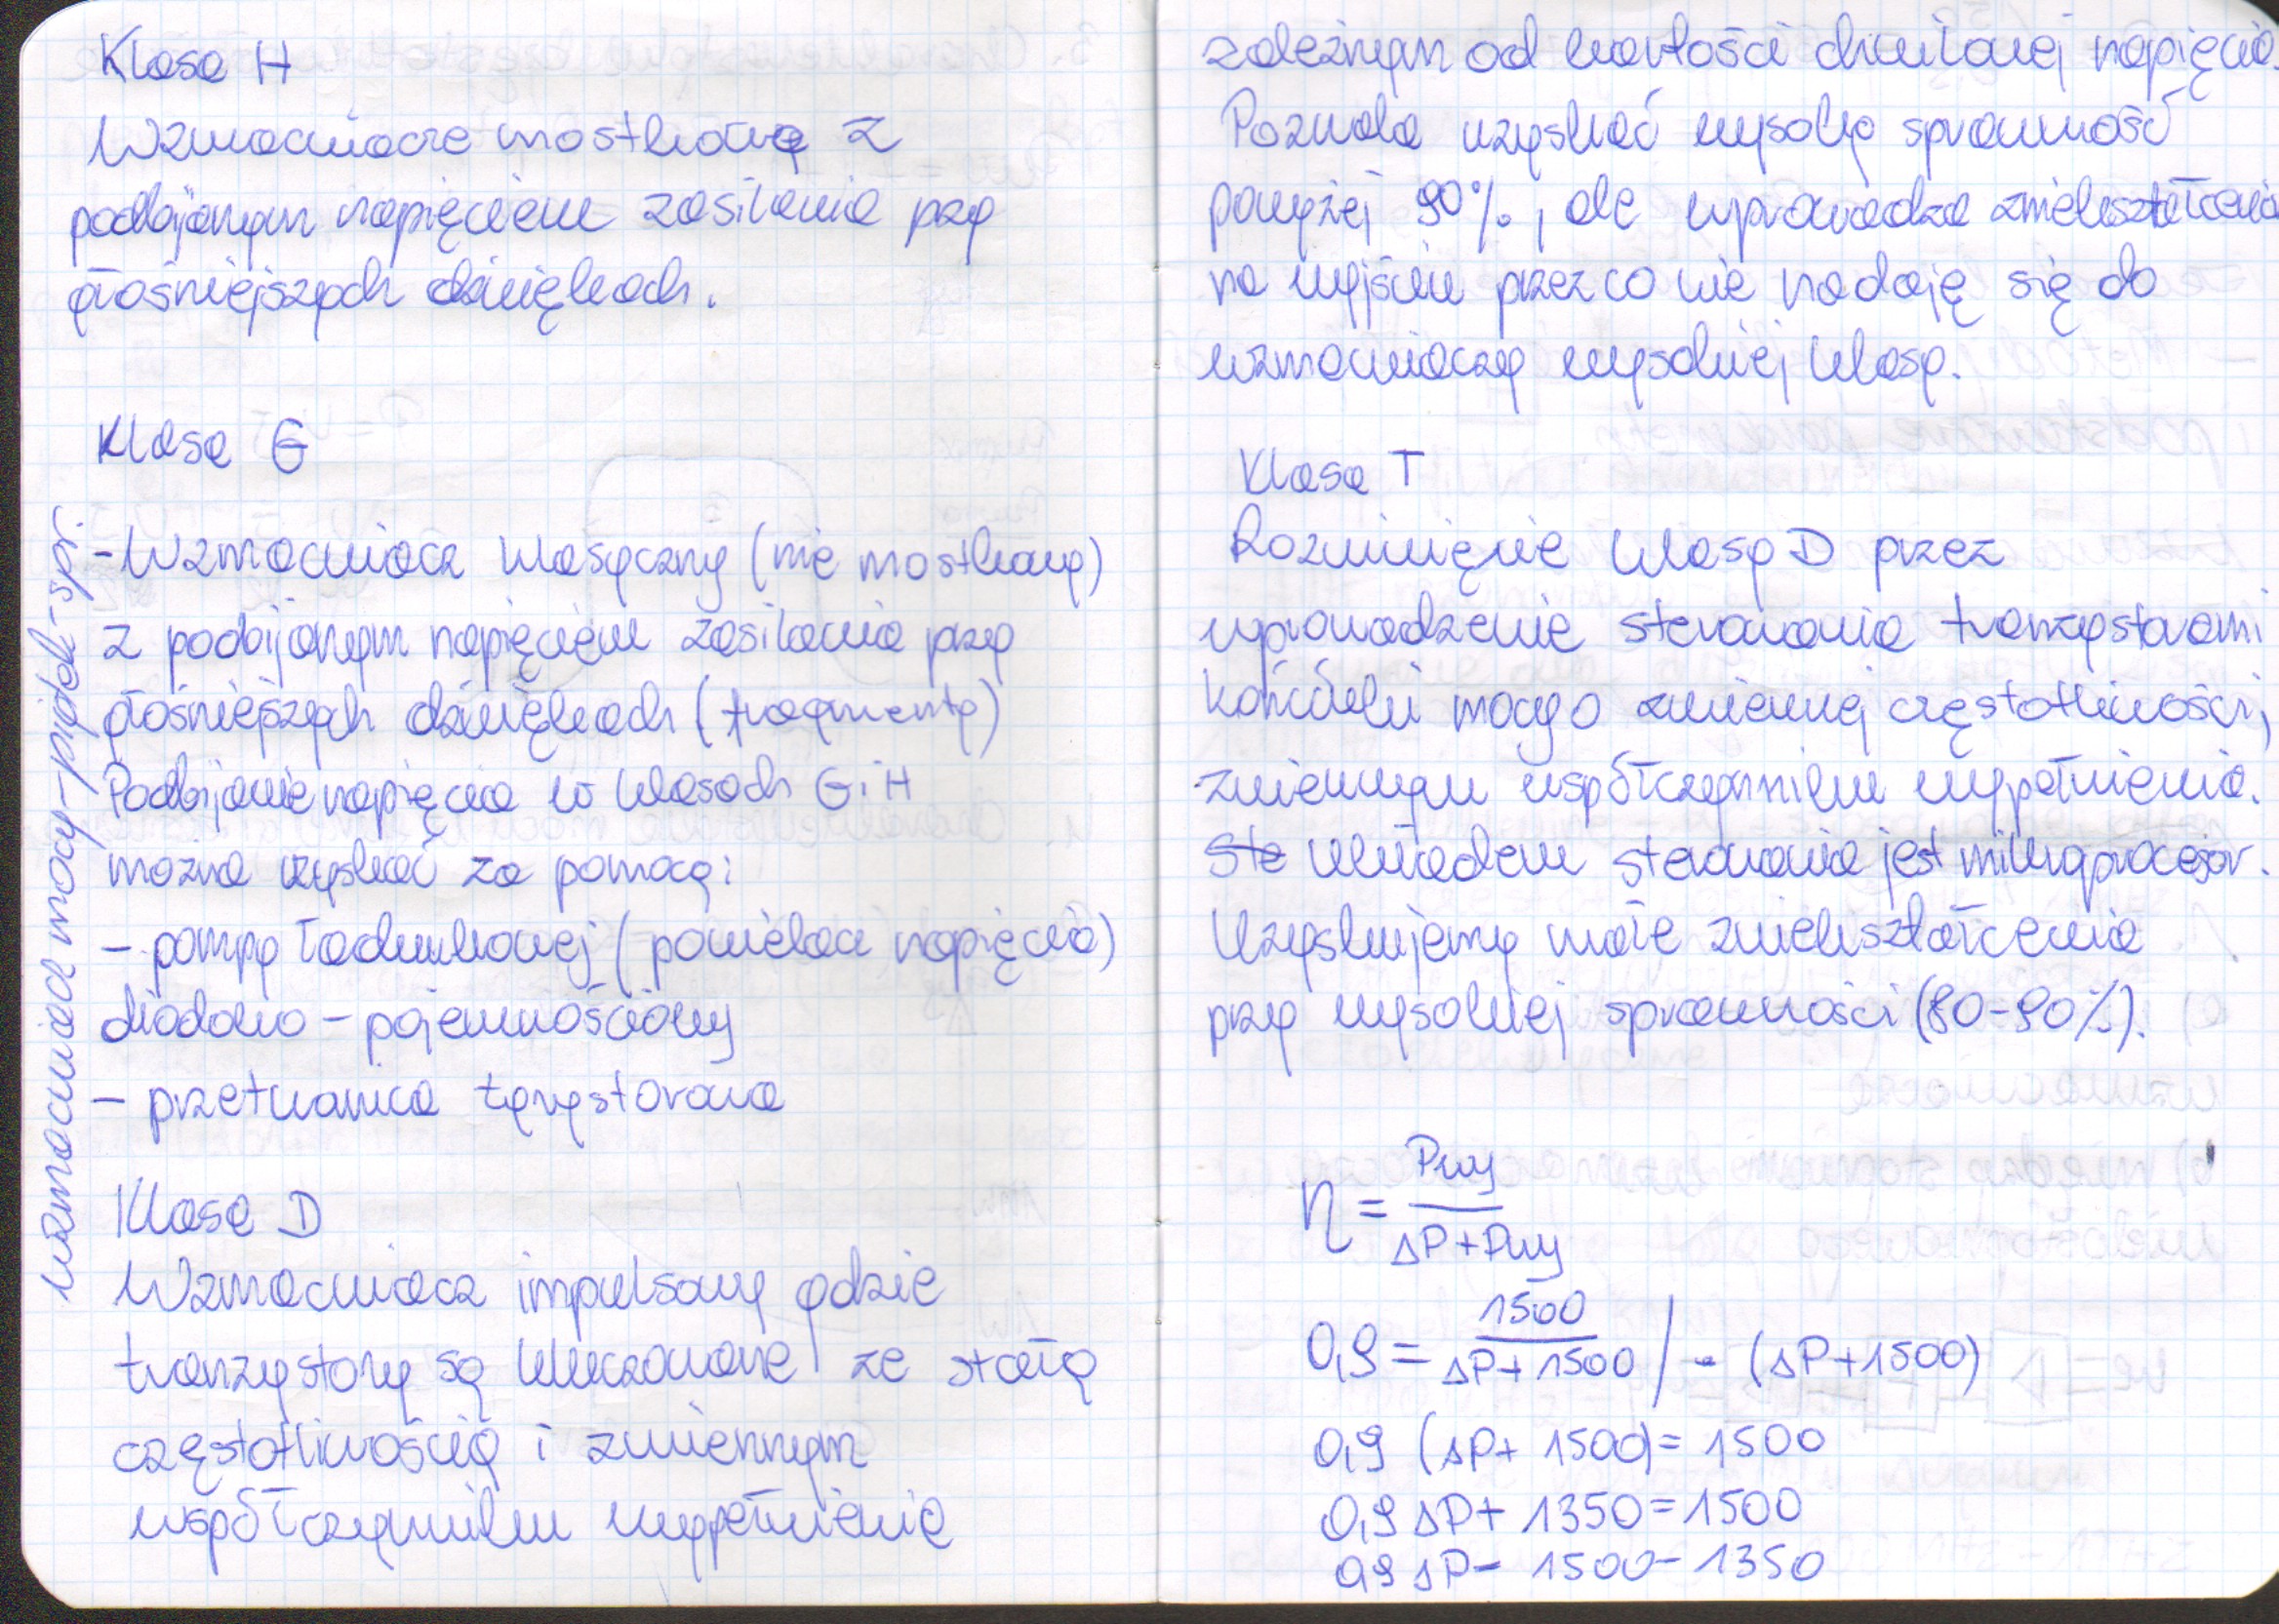 Klasa H
Wzmacniacze mostkowe z
podbijanym napięciem zasilania przy
głośniejszych dźwiękach.
Klasa G
- Wzmacniacz klasyczny (nie mostkowy)
z podbijanym napięciem zasilania przy
głośniejszych dźwiękach (fragmenty)
Podbijanie napięcia w klasach G i H
można uzyskać za pomocą:
- pompy ładunkowej (powielacz napięcia)
diodowo - pojemnościowy
- przetwornica tyrystorowa
Klasa D
Wzmacniacz impulsowy gdzie
tranzystory są kluczowane ze stałą
częstotliwością i zmiennym
współczynniku wypełnienie
wzmacniacz mocy - piątek - spr.
zależnym od wartości chwilowej napięcia.
Pozwala uzyskać wysoką sprawność
powyżej 90%, ale wprowadza zniekształcenia
na wyjściu przez co nie nadaję się do
wzmacniaczy wysokiej klasy.
Klasa T
Rozwinięcie klasy D przez
wprowadzenie sterowania tranzystorami
końcówki mocy o zmiennej częstotliwości i
zmiennym współczynniku wypełnienia.
Ste układem sterowania jest mikroprocesor.
Uzyskujemy małe zniekształcenia
przy wysokiej sprawności (80-90%).
η = Pwy / ΔP+Pwy
0,9 = 1500 / ΔP+1500 | · (ΔP+1500)
0,9 (ΔP+ 1500) = 1500
0,9 ΔP+ 1350 = 1500
0,9 ΔP = 1500 - 1350